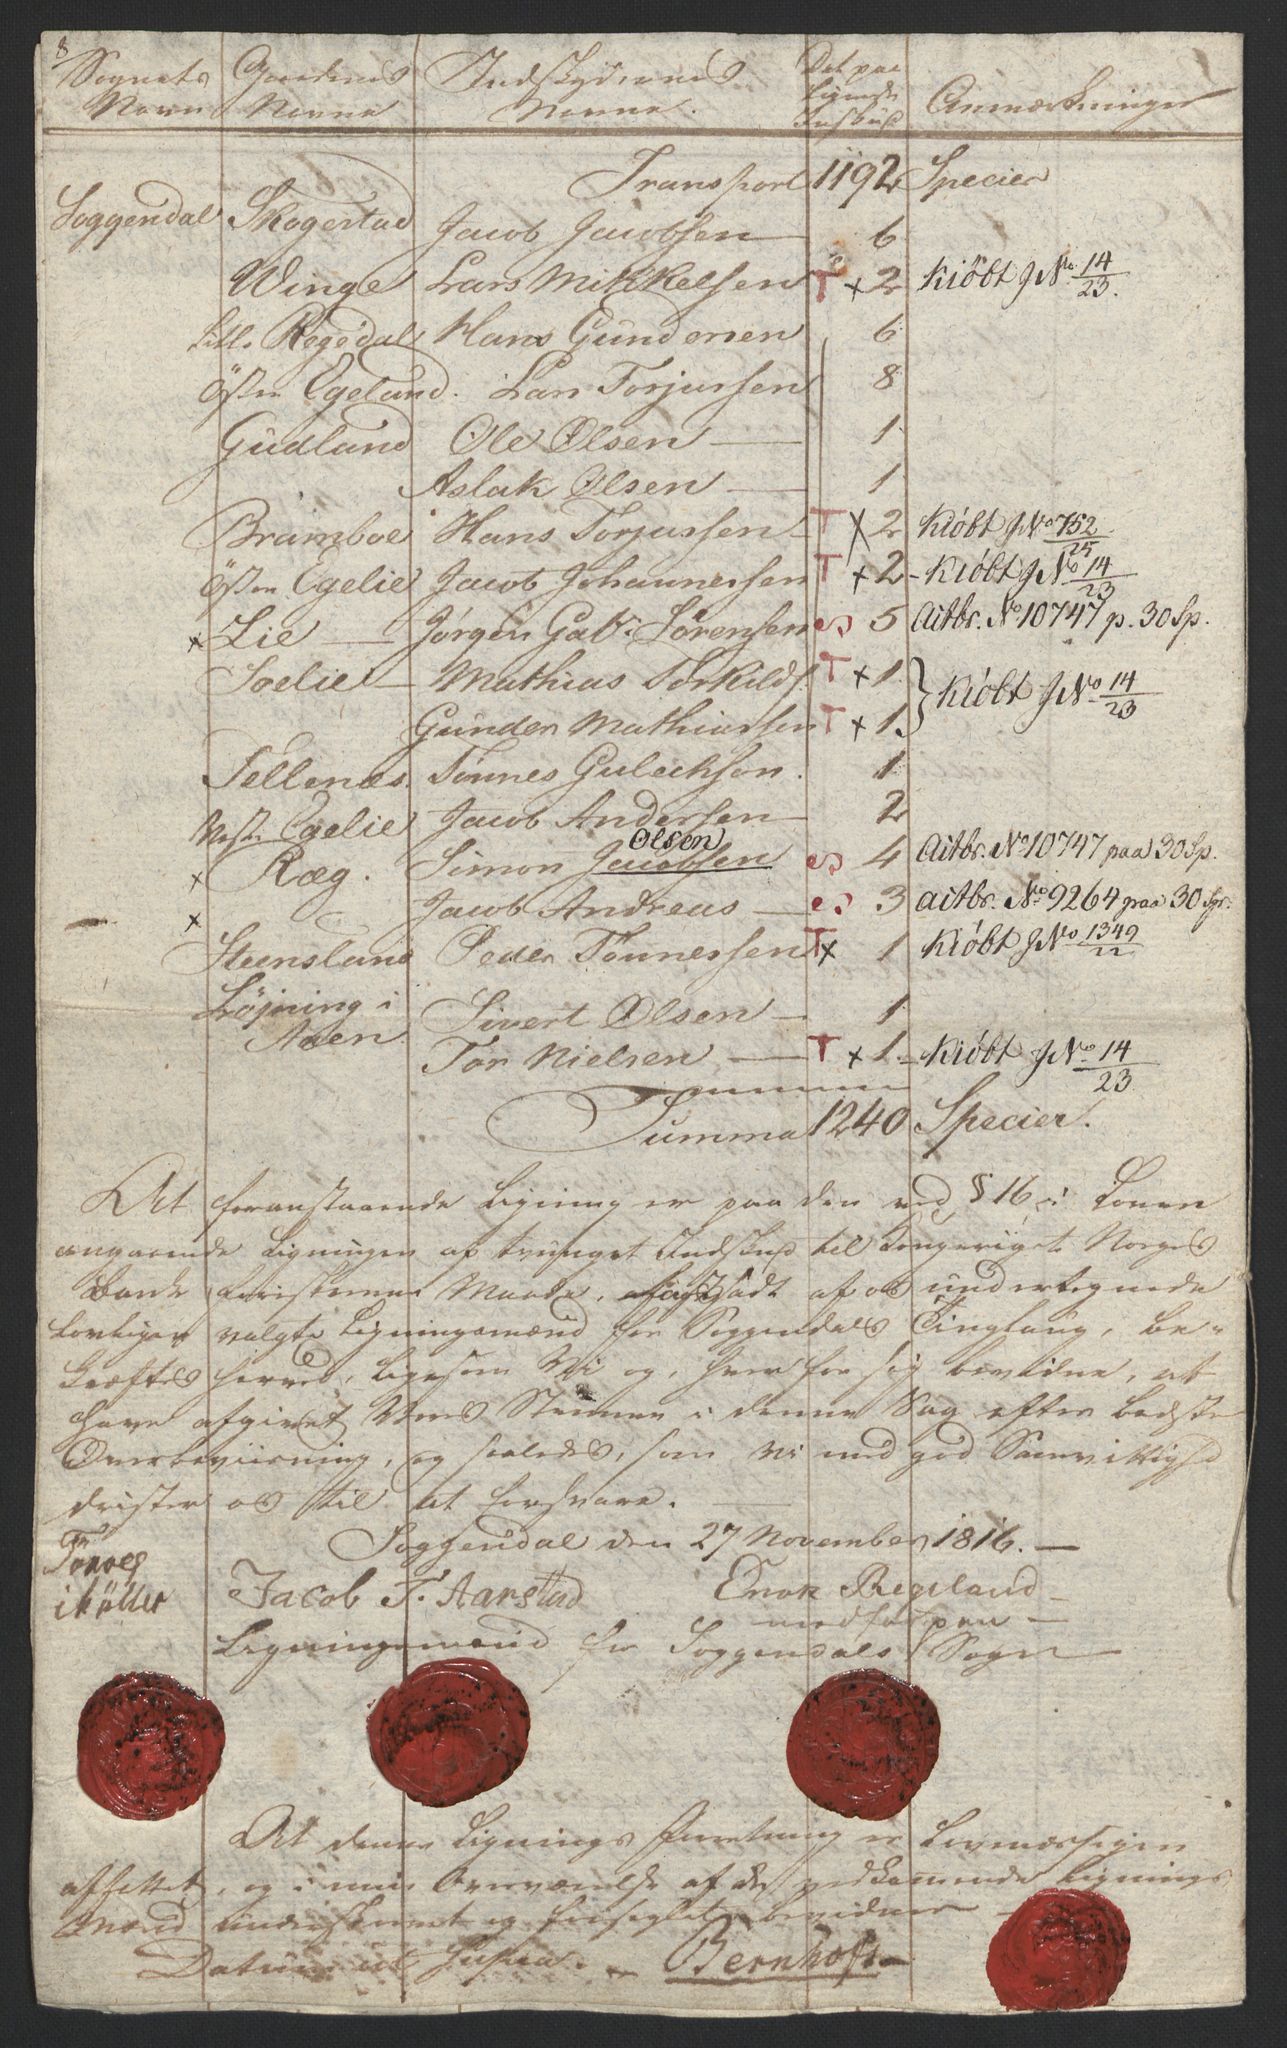 8
Sognets Navn | Gaardenes Navne | Indskydernes Navne. | Det paa Lignede Indskud | Anmærkninger
Transport 1192 Specier
Soggendal Skogestad Jacob Jacobsen 6
Winge Lars Mikkelsen T x 2 Kiöbt J No 14/23.
Lill. Regedal Hans Gundersen 6
Östre Egeland. Lars Torjussen 8
Gudland Ole Olsen 1
Aslak Olsen 1
Bramboe Hans Torjussen T X 2 Kiöbt J No 752/25
Östre Egelie Jacob Johannessen T x 2 - Kiöbt J No 14/23
x Lie Jörgen Gab. Sörensen es 5 Aitbr. No 10747 p. 30 Sp.
Soelie Mathias Torkilds. T x 1 } Kiöbt J No 14/23
Gunder Mathiassen T x 1
Tellenæs. Tönnes Gulechson. 1
Vest. Egelie Jacob Andersen 2
x Ræg. Simon Jacobsen Olsen es 4 Aitbr. No 10747 paa 30 Sp.
x Jacob Andreas es 3 aitbr. No 9264 paa 30 Spr.
Steensland Peder Tönnessen T x 1 Kiöbt J No 1349/22
Löjning i
Aaen Sivert Olsen 1
Tor Nielsen T x 1 - Kiöbt J No 14/23
Summa 1240 Specier.
At foranstaaende Ligning er paa den ved § 16 i Loven
angaaende Ligningen af tvunget Indskud til Kongeriget Norges
Bank foreskrevne Maade, afholdt af os undertegnede
Lovligen valgte Ligningsmænd for Soggendals Tinglaug, be-
kræftes herved, ligesom Vi og, hver for sig bevidne, at
have afgivet Vores Stemme i denne Sag efter bedste
Overbeviisning, og saaledes, som vi med god Samvittighed
drister os til at forsvare.
Soggendal den 27 November 1816.
Tönnes
i Möller Jacob T. Aarstad Enok Regeland
med paa
Ligningsmænd for Soggendals Sogn
At denne Lignings Forretning er Lovmæssigen
affattet, og i min Overværelse af de vedkommende Lignings
Mænd underskrevet og forseglet bevidner
Datum ut supra. Bernhoft